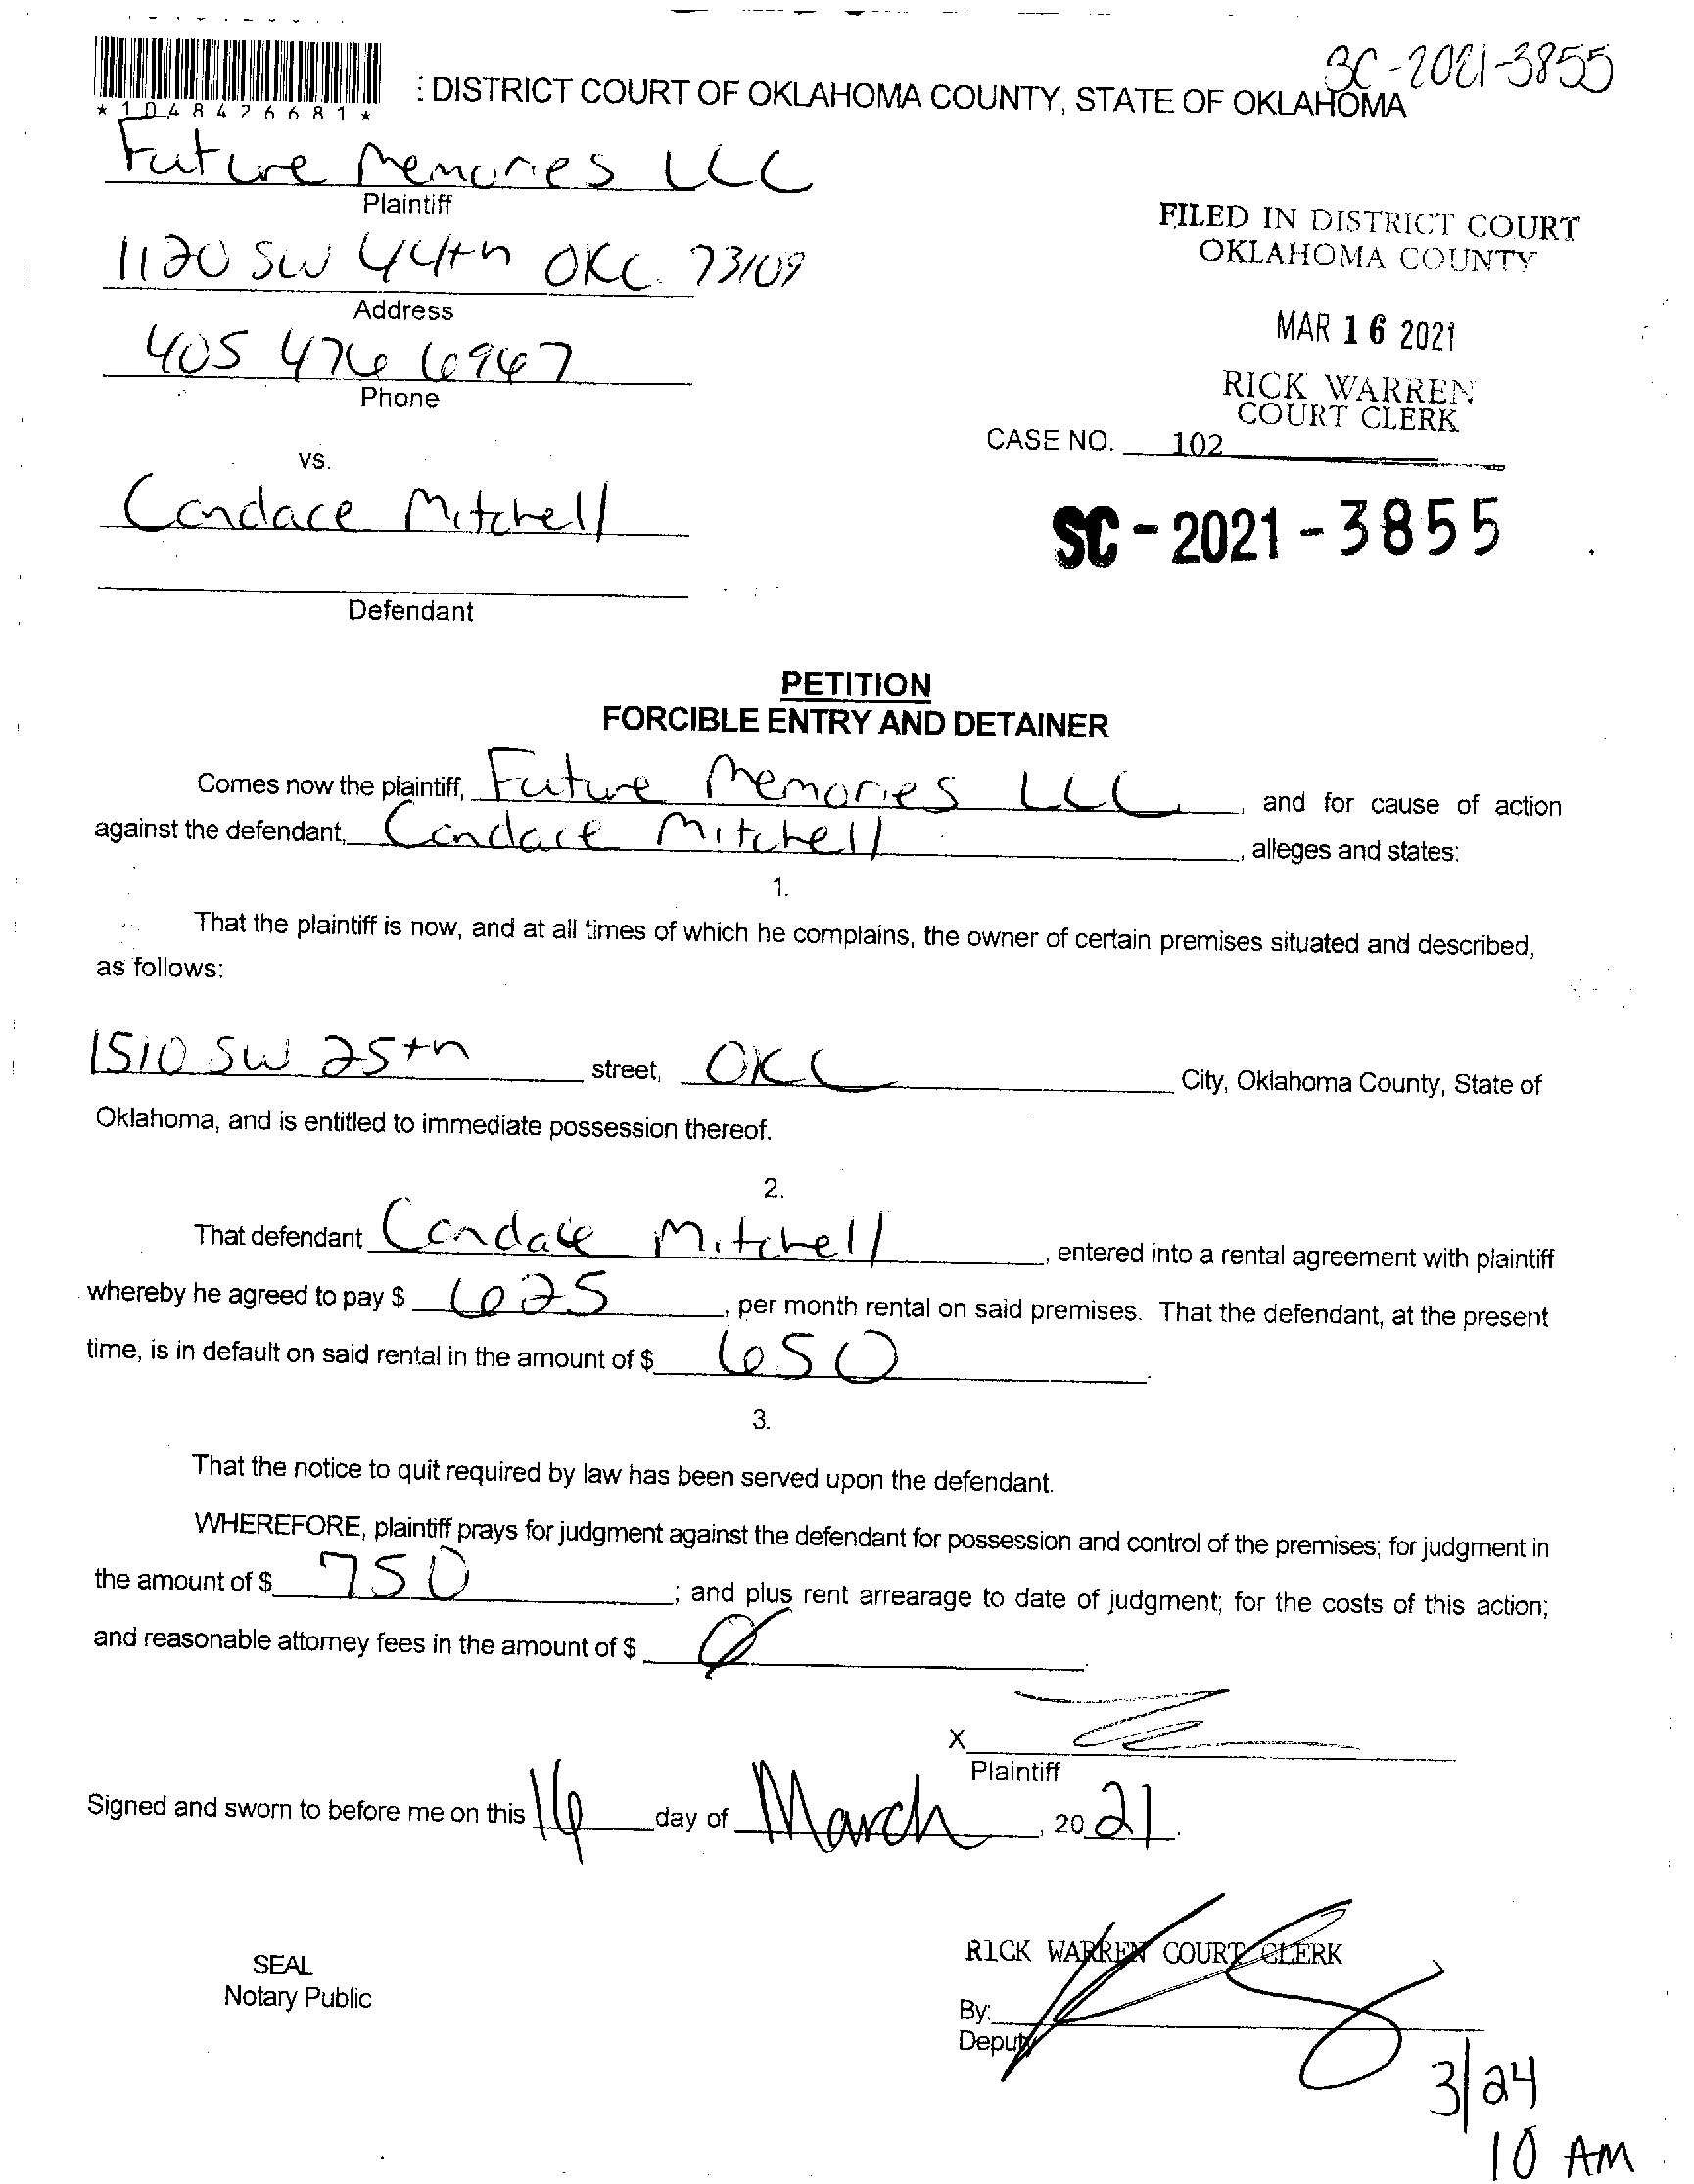 SC-2021-3855
: DISTRICT COURT OF OKLAHOMA COUNTY, STATE OF OKLAHOMA
* 1 0 4 8 4 2 6 6 8 1 *
Future Memories LLC
Plaintiff
FILED IN DISTRICT COURT
OKLAHOMA COUNTY
1120 SW 44th OKC. 73109
Address
MAR 16 2021
405 476 6967
Phone
RICK WARREN
COURT CLERK
CASE NO. 102
vs.
Candace Mitchell
SC - 2021 - 3855
Defendant
PETITION
FORCIBLE ENTRY AND DETAINER
Comes now the plaintiff, Future Memories LLC, and for cause of action
against the defendant, Candace Mitchell, alleges and states:
1.
That the plaintiff is now, and at all times of which he complains, the owner of certain premises situated and described,
as follows:
1510 SW 25th street, OKC City, Oklahoma County, State of
Oklahoma, and is entitled to immediate possession thereof.
2.
That defendant Candace Mitchell, entered into a rental agreement with plaintiff
whereby he agreed to pay $ 625, per month rental on said premises. That the defendant, at the present
time, is in default on said rental in the amount of $ 650
3.
That the notice to quit required by law has been served upon the defendant.
WHEREFORE, plaintiff prays for judgment against the defendant for possession and control of the premises; for judgment in
the amount of $ 750; and plus rent arrearage to date of judgment; for the costs of this action;
and reasonable attorney fees in the amount of $ 0
X
Plaintiff
Signed and sworn to before me on this 16 day of March, 2021
RICK WARREN COURT CLERK
SEAL
Notary Public
By:
Deputy
3/24
10 AM